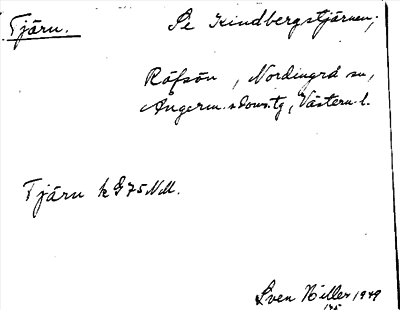 Tjärn. Se Kindbergstjärnen;
Räfsön, Nordingrå sn,
Ångerm. s doms.tg, Västern. l.
Tjärn k G 75 NM.
Sven Hiller 1949